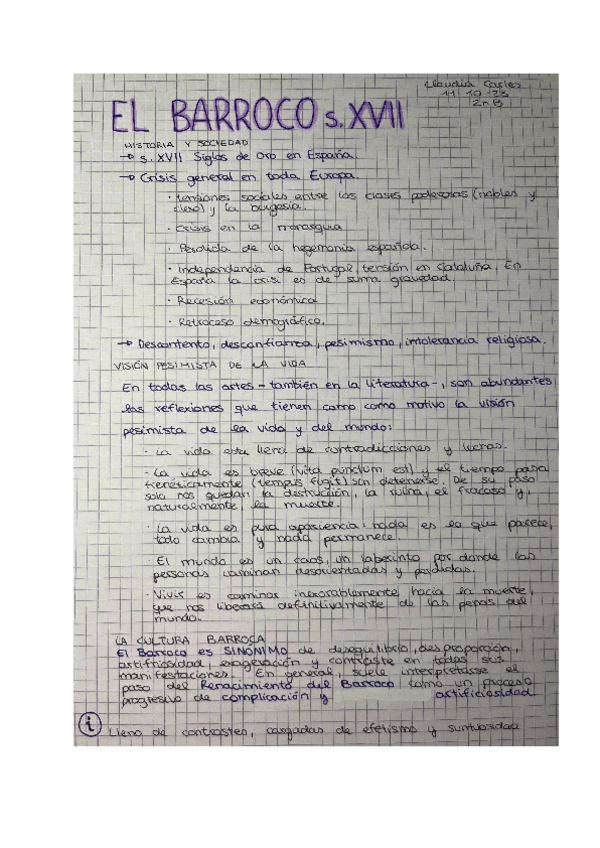 Claudia
11 10 23
2n B
EL BARROCO s. XVII
HISTORIA Y SOCIEDAD
→ s. XVII Siglos de Oro en España.
→ Crisis general en toda Europa.
· Tensiones sociales entre las clases poderosas (nobles y
clero) y la burgesia.
· Crisis en la monarquia
· Perdida de la hegemonia española.
· Independencia de Portugal, tensión en Cataluña. En
España la crisi es de suma gravedad.
· Recesión económica
· Retroceso demográfico.
→ Descontento, desconfianza, pesimismo, intolerancia religiosa.
VISIÓN PESIMISTA DE LA VIDA
En todas las artes - también en la literatura -, son abundantes
las reflexiones que tienen como como motivo la visión
pesimista de la vida y del mundo:
· La vida esta llena de contradicciones y luchas.
· La vida es breve (vita punctum est) y el tiempo pasa
freneticamente (tempus fugit) sin detenerse. De su paso
solo nos quedan la destrucción, la ruina, el fracaso y,
naturalmente, la muerte.
· La vida es pura apariencia: nada es lo que parece,
todo cambia y nada permanece.
· El mundo es un caos, un laberinto por donde las
personas caminan desorientadas y perdidas.
· Vivir es caminar inexorablemente hacia la muerte,
que nos liberará definitivamente de las penas del
mundo.
LA CULTURA BARROCA
El Barroco es SINÓNIMO de desequilibrio, desproporción,
artifiosidad, exageración y contraste en todas sus
manifestaciones. En general, suele interpretarse el
paso del Renacimiento del Barroco como un proceso
progresivo de complicación y artificiosidad.
i
Lleno de contrastes, cargadas de efetismo y suntuosidad